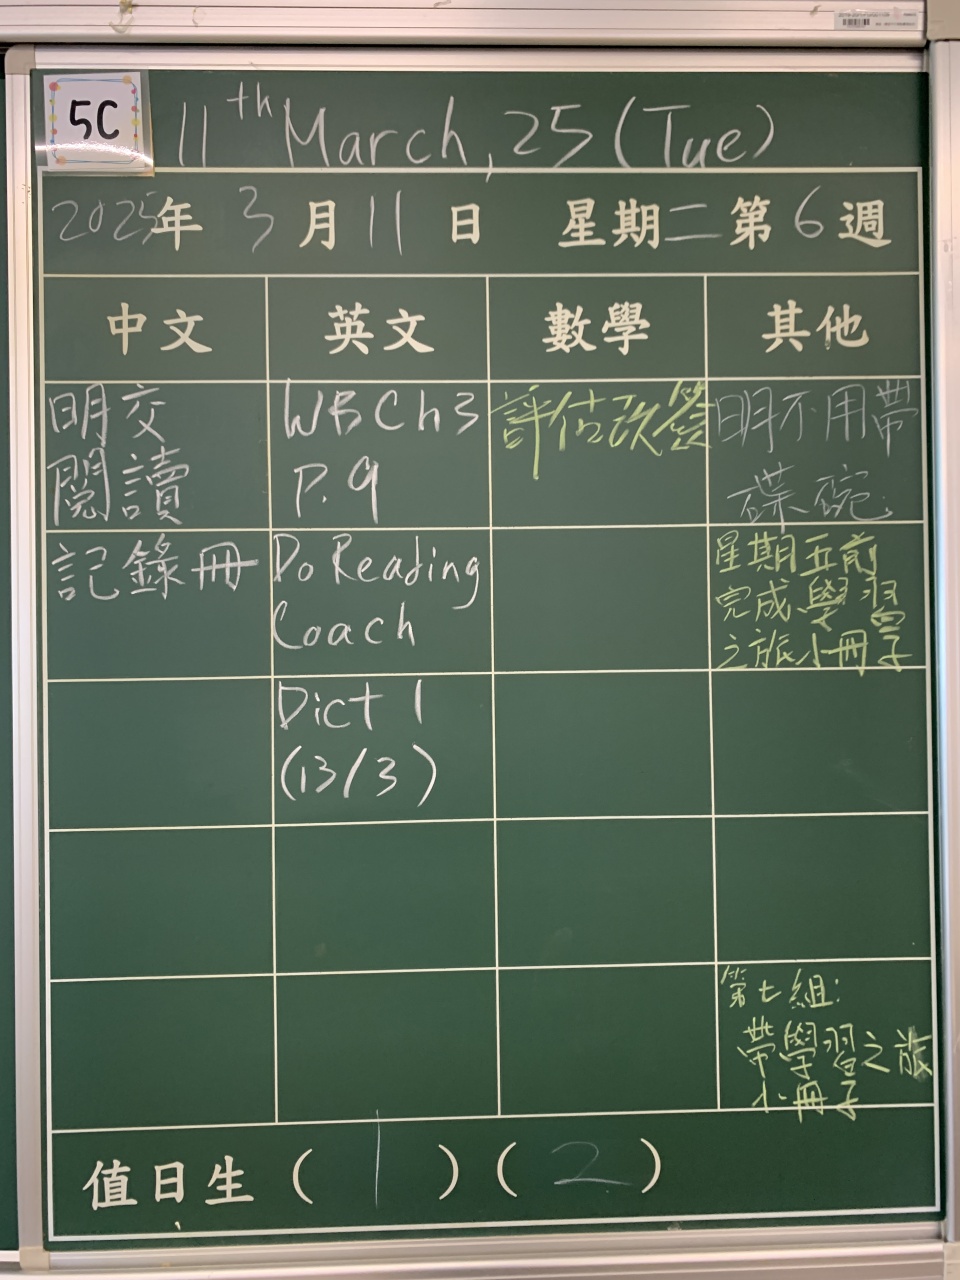 5C
11th March, 25 (Tue)
2025年 3月 11日 星期二 第6週
中文
英文
數學
其他
明交
閱讀
記錄冊
WB Ch3
P. 9
Do Reading
Coach
Dict 1
(13/3)
評估改簽
明不用帶
碟碗
星期五前
完成學習
之旅小冊子
第七組:
帶學習之旅
小冊子
值日生 ( 1 ) ( 2 )